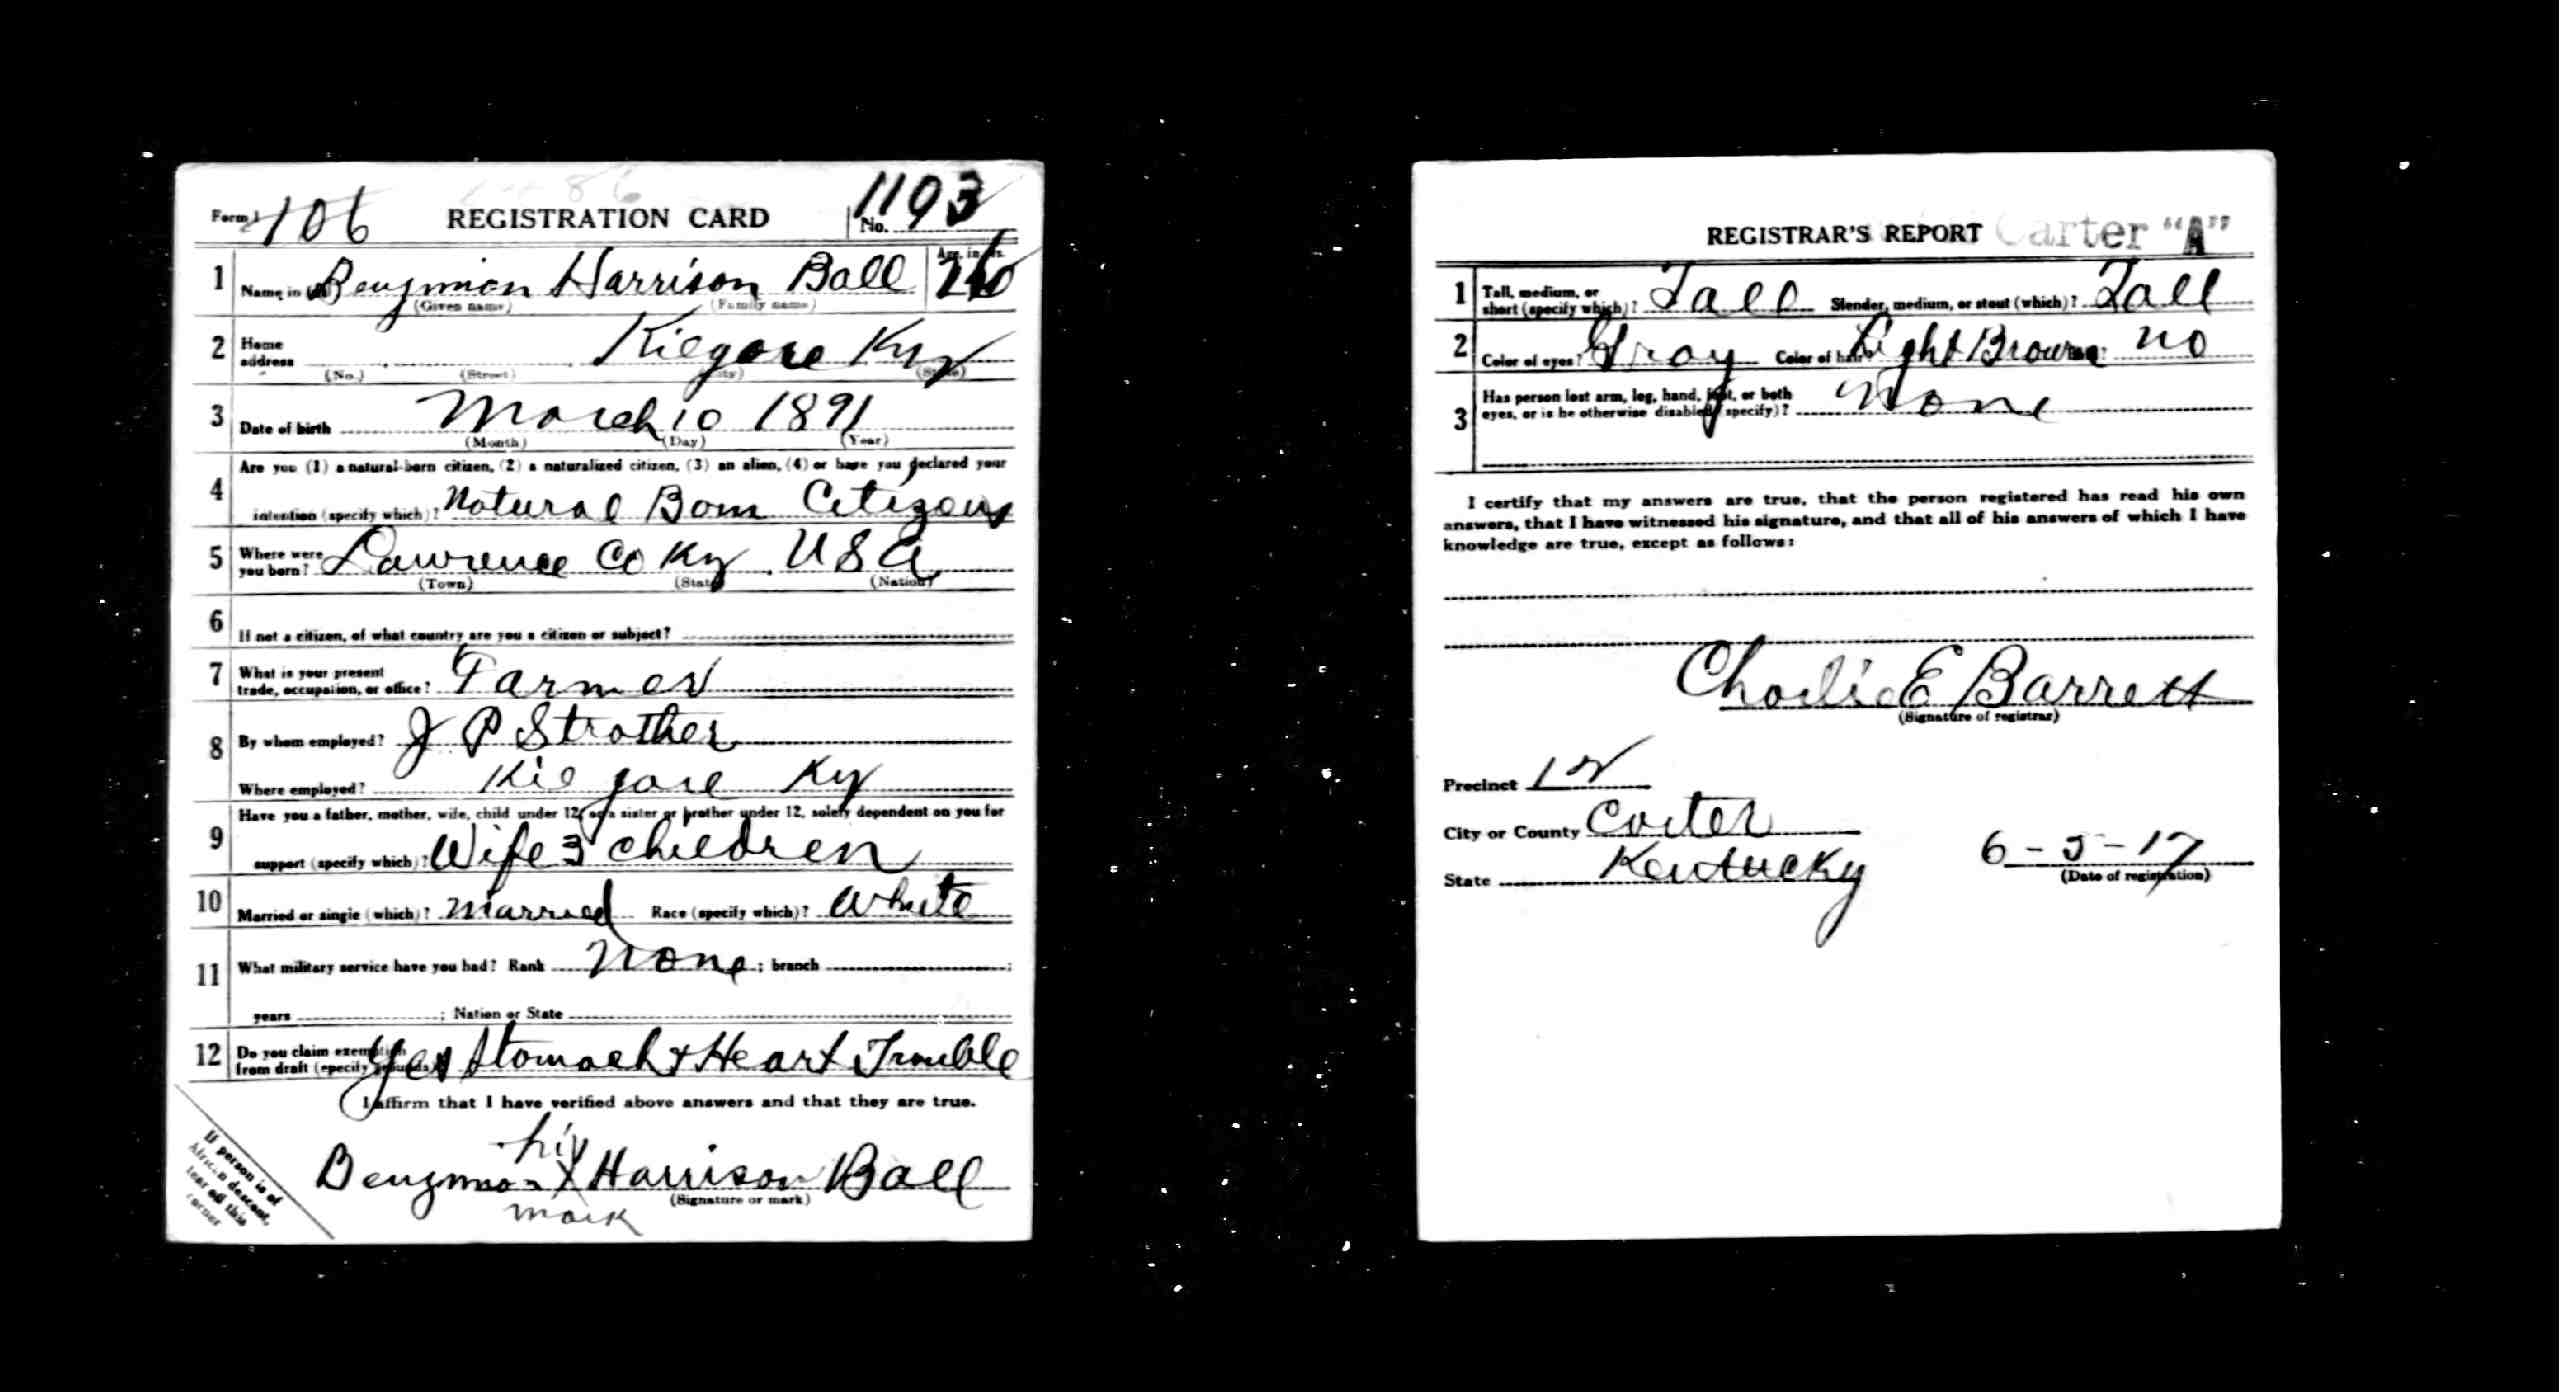 Form 1 106 REGISTRATION CARD No. 1193
1 Name in full Benjmion Harrison Ball Age, in yrs. 26
(Given name) (Family name)
2 Home address Kilgore Ky
(No.) (Street) (City) (State)
3 Date of birth March 10 1891
(Month) (Day) (Year)
Are you (1) a natural-born citizen, (2) a naturalized citizen, (3) an alien, (4) or have you declared your
4 intention (specify which)? Natural Born Citizens
5 Where were you born? Lawrence Co Ky. USA
(Town) (State) (Nation)
6 If not a citizen, of what country are you a citizen or subject?
7 What is your present trade, occupation, or office? Farmer
8 By whom employed? J P Strother
Where employed? Kilgore Ky
Have you a father, mother, wife, child under 12, or a sister or brother under 12, solely dependent on you for
9 support (specify which)? Wife 3 children
10 Married or single (which)? Married Race (specify which)? White
11 What military service have you had? Rank None; branch ;
years ; Nation or State
12 Do you claim exemption from draft (specify grounds)? Yes Stomach & Heart Trouble
I affirm that I have verified above answers and that they are true.
his
Benjmion X Harrison Ball
(Signature or mark)
mark
If person is of
African descent,
tear off this
corner
REGISTRAR'S REPORT Carter "A"
1 Tall, medium, or short (specify which)? Tall Slender, medium, or stout (which)? Tall
2 Color of eyes? Gray Color of hair? Light Brown No
3 Has person lost arm, leg, hand, foot, or both
eyes, or is he otherwise disabled (specify)? None
I certify that my answers are true, that the person registered has read his own
answers, that I have witnessed his signature, and that all of his answers of which I have
knowledge are true, except as follows:
Charlie E Barrett
(Signature of registrar)
Precinct 12
City or County Carter
State Kentucky 6-5-17
(Date of registration)